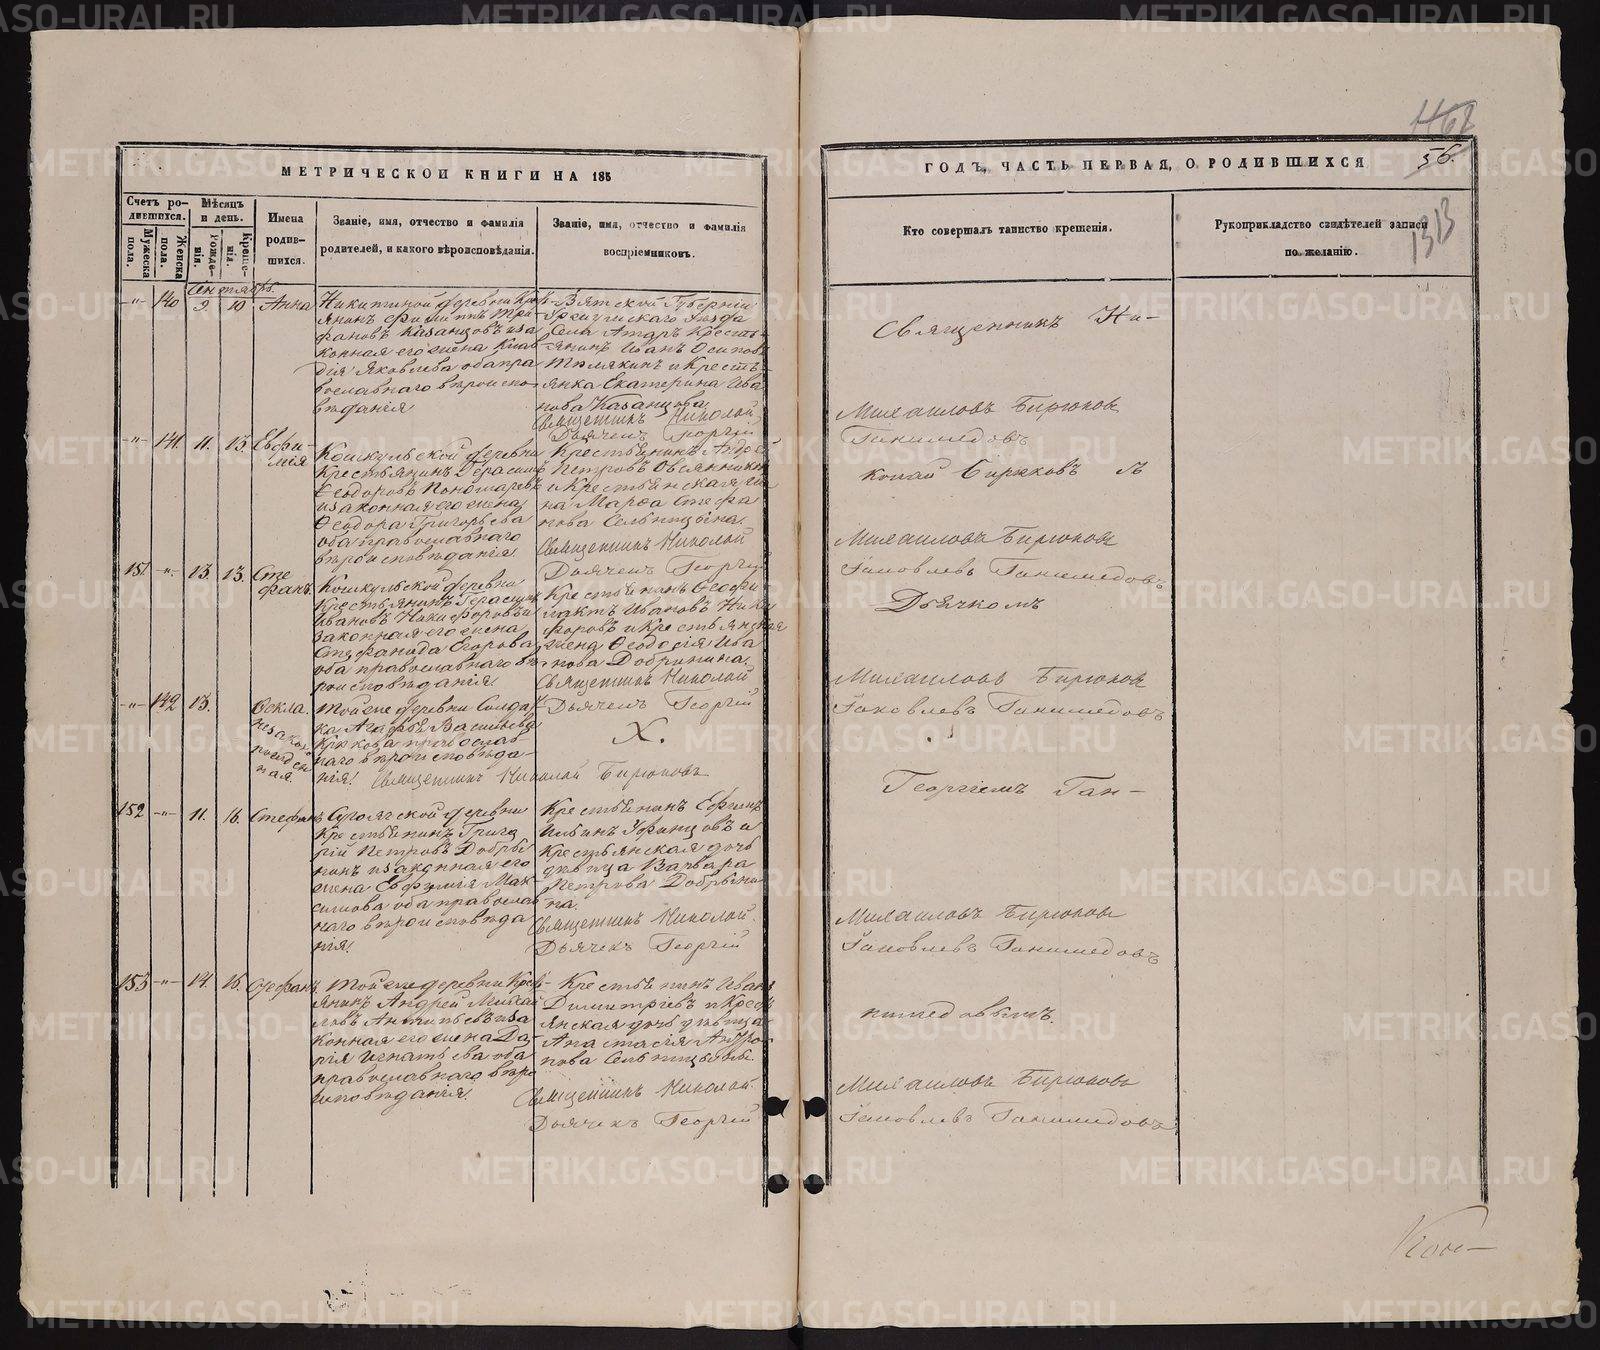 МЕТРИЧЕСКОЙ КНИГИ НА 185
Счетъ ро-
дившихся.
Мужеска пола.
Женска пола.
Мѣсяцъ
и день.
Рожде-
нія.
Креще-
нія.
Имена
родив-
шихся.
Званіе, имя, отчество и фамилія
родителей, и какого вѣроисповѣданія.
Званіе, имя, отчество и фамилія
воспріемниковъ.
Сентябрь
-"- 140 9. 10 Анна
Никитиной деревни Крес-
янинъ Филиппъ Три-
фановъ Казанцовъ иза
конная его жена Клав
дія Яковлева оба пра
вославнаго вѣроиспо-
вѣданія
Вятской Губерніи
Уѣзда
Села Кресть-
янинъ Иванъ Осиповъ
и Кресть-
янка Екатерина Ива
нова Казанцова
Священникъ Николай
Дьячекъ Георгій
-"- 141. 11. 13. Евфи-
мія
Кошкульской деревни
Крестьянинъ Герасимъ
Ѳеодоровъ Пономаревъ
изаконная его жена
Ѳеодора Григорьева
оба православнаго
вѣроисповѣданія
Крестьянинъ Андрей
Петровъ Овсянниковъ
и Крестьянская же
на Марѳа Стефа
нова Сельницына.
Священникъ Николай
Дьячекъ Георгій
151 -"- 13. 13. Сте
фанъ
Кошкульской деревни
Крестьянинъ Герасимъ
Ивановъ Никифоровъ и
законная его жена
Стефанида Егорова
оба православнаго вѣ
роисповѣданія
Крестьянинъ Ѳеофи
лактъ Ивановъ Ники
форовъ и Крестьянская
жена Ѳеодосія Ива
нова Добрынина.
Священникъ Николай
Дьячекъ Георгій
-"- 142 13. Ѳекла.
незакон
рожден
ная.
Тойже деревни Солдат
ка Агафья Васильева
Крюкова православ-
наго вѣроисповѣда-
нія!
X.
Священникъ Николай Бирюковъ
152 -"- 11. 16. Стефанъ
деревни
Крестьянинъ Григо
рій Петровъ Добры
нинъ изаконная его
жена Евфимія Мак-
симова оба православ
наго вѣроисповѣда
нія!
Крестьянинъ Ефимъ
Ильинъ Уфинцовъ и
Крестьянская дочь
дѣвица Варвара
Петрова Добрыни
на.
Священникъ Николай
Дьячекъ Георгій
153 -"- 14. 16. Стефанъ
Тойже деревни Крест-
янинъ Андрей Михай
ловъ Антипьевъ иза
конная его жена Да-
рія Игнатьева оба
православнаго вѣро
исповѣданія.
Крестьянинъ Иванъ
Димитріевъ и Крест
янская дочь дѣвица
Анастасія Андро-
нова Сельницына.
Священникъ Николай
Дьячекъ Георгій
1468
56.
1313
ГОДЪ, ЧАСТЬ ПЕРВАЯ, О РОДИВШИХСЯ
Кто совершалъ таинство крещенія.
Рукоприкладство свидѣтелей записи
по желанію.
Священникъ Ни-
Михаиловъ Бирюковъ
Ганимедовъ
колай Бирюковъ съ
Михаиловъ Бирюковъ
Іаковлевъ Ганимедовъ
Дьячкомъ
Михаиловъ Бирюковъ
Іаковлевъ Ганимедовъ
Георгіемъ Ган-
Михаиловъ Бирюковъ
Іаковлевъ Ганимедовъ
имедовымъ.
Михаиловъ Бирюковъ
Іаковлевъ Ганимедовъ
METRIKI.GASO-URAL.RU